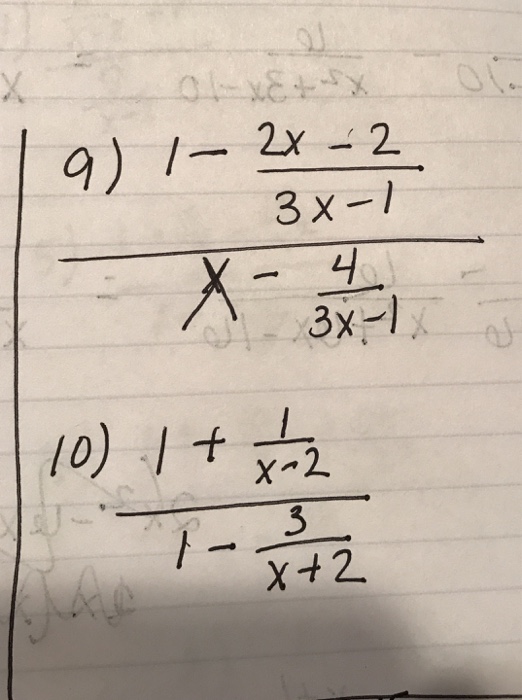 9) 1 - 2x - 2
3x - 1
x - 4
3x - 1
10) 1 + 1
x - 2
1 - 3
x + 2